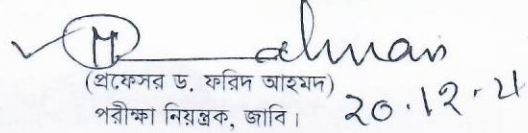 (প্রফেসর ড. ফরিদ আহমদ)
পরীক্ষা নিয়ন্ত্রক, জাবি।
20.12.21